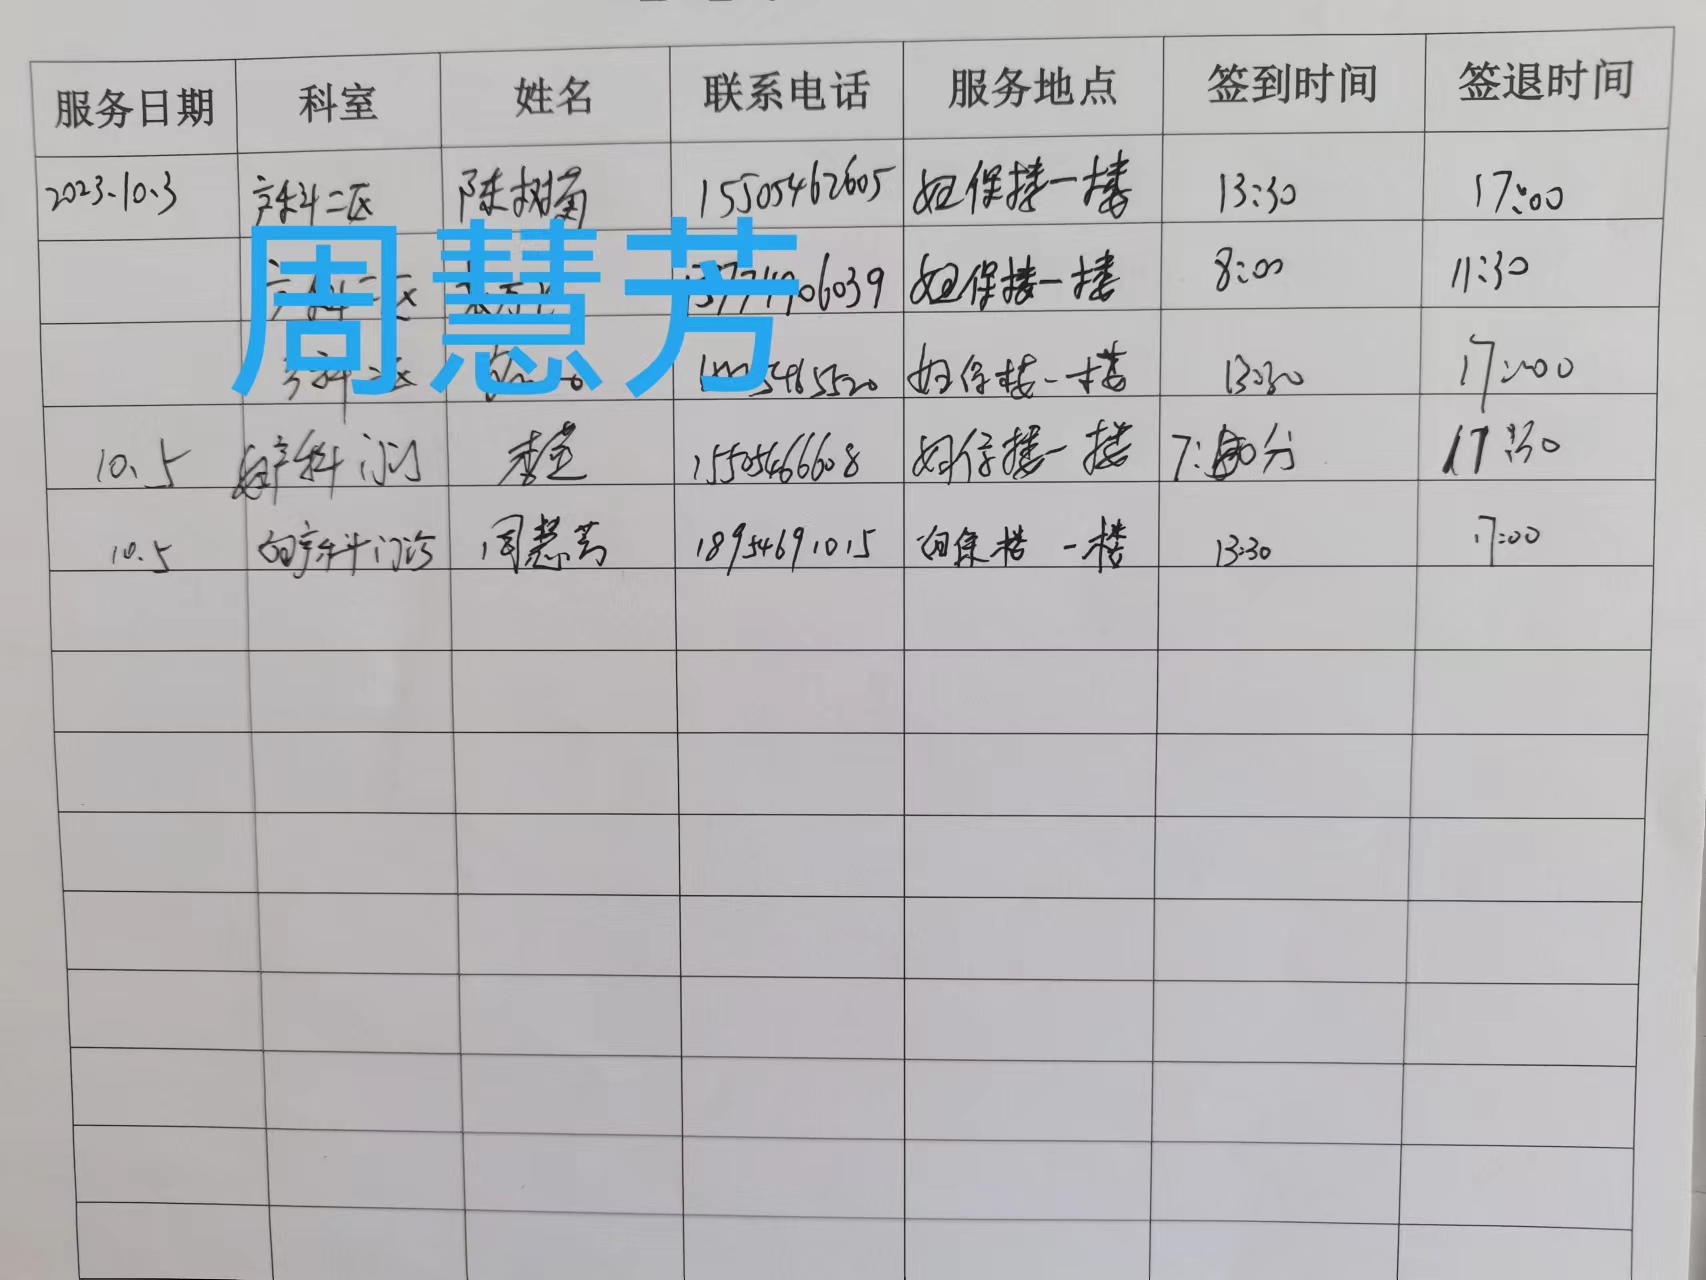 服务日期 科室 姓名 联系电话 服务地点 签到时间 签退时间
2023.10.3 产科二区 陈树菊 15505462605 妇保楼一楼 13:30 17:00
产科二区 06039 妇保楼一楼 8:00 11:30
周慧芳
产科二区 5465520 妇保楼一楼 13:30 17:00
10.5 妇产科门诊 李莹 15505466608 妇保楼一楼 7:分 17:30
10.5 妇产科门诊 周慧芳 18954691015 妇保楼 一楼 13:30 17:00